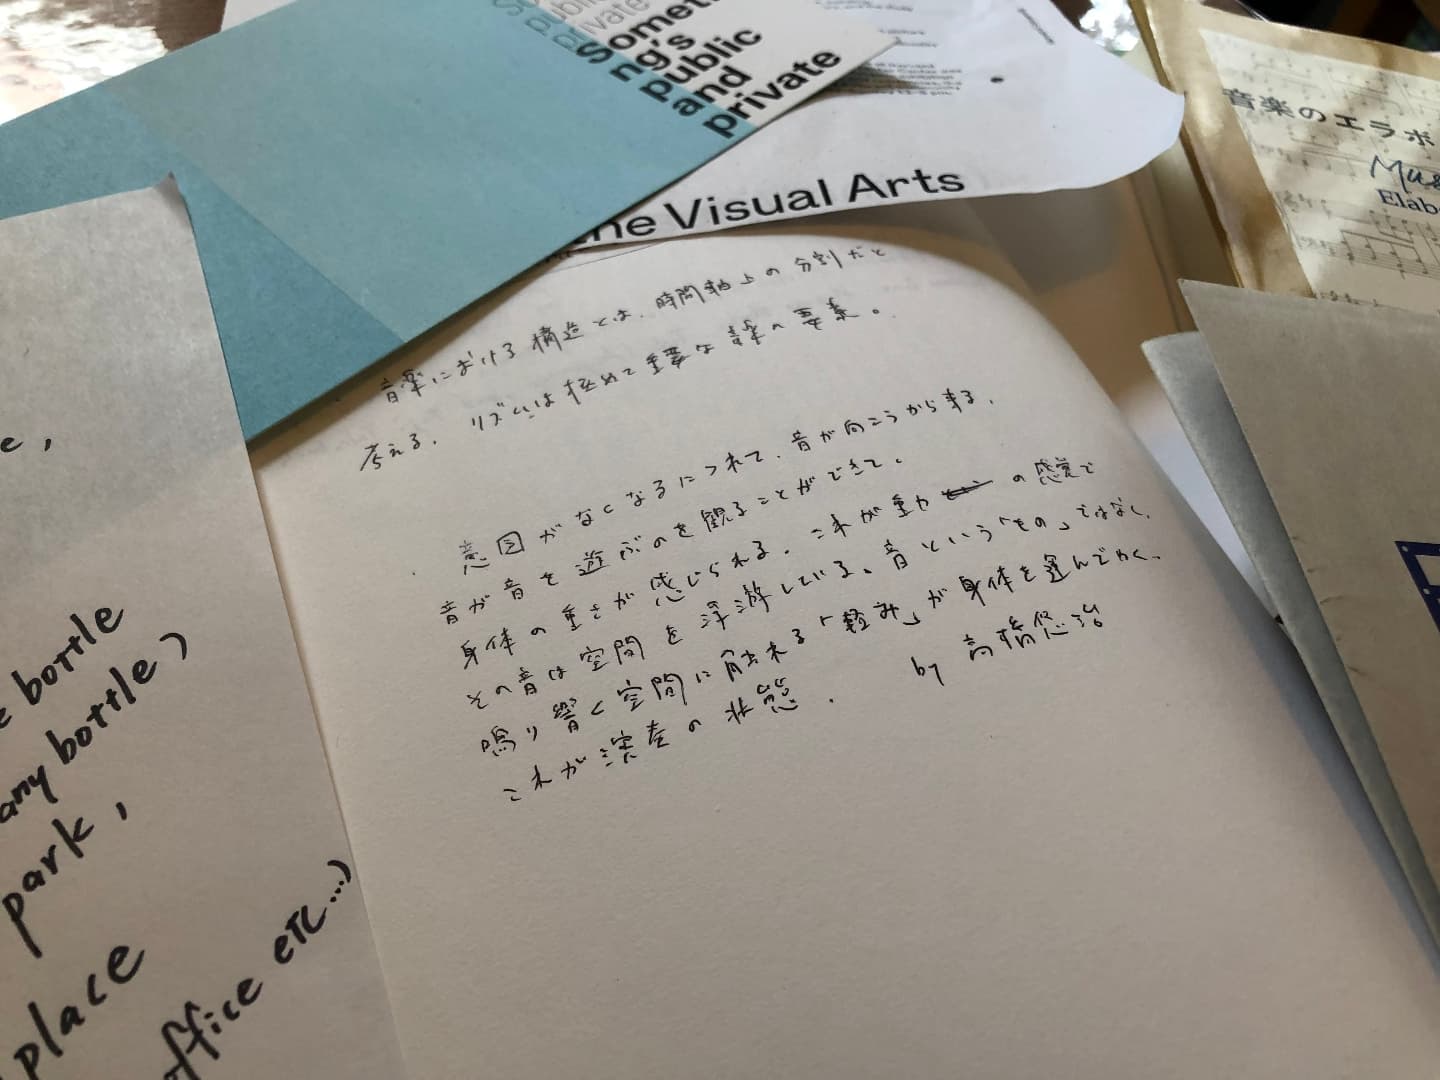 Someth
ng's
public
and
private
the Visual Arts
音楽のエラボ
Mus
Elab
・音楽における構造とは、時間軸上の分割だと
考える。リズムは極めて重要な音楽の要素。
・意図がなくなるにつれて、音が向こうから来る、
音が音を遊ぶのを観ることができて、
身体の重さが感じられる。これが重力の感覚で
その音は空間を浮遊している。音という「もの」ではなく、
鳴り響く空間に触れる「軽み」が身体を運んでいく、
これが演奏の状態。 by 高橋悠治
e,
e bottle
any bottle)
park,
place
office etc...)